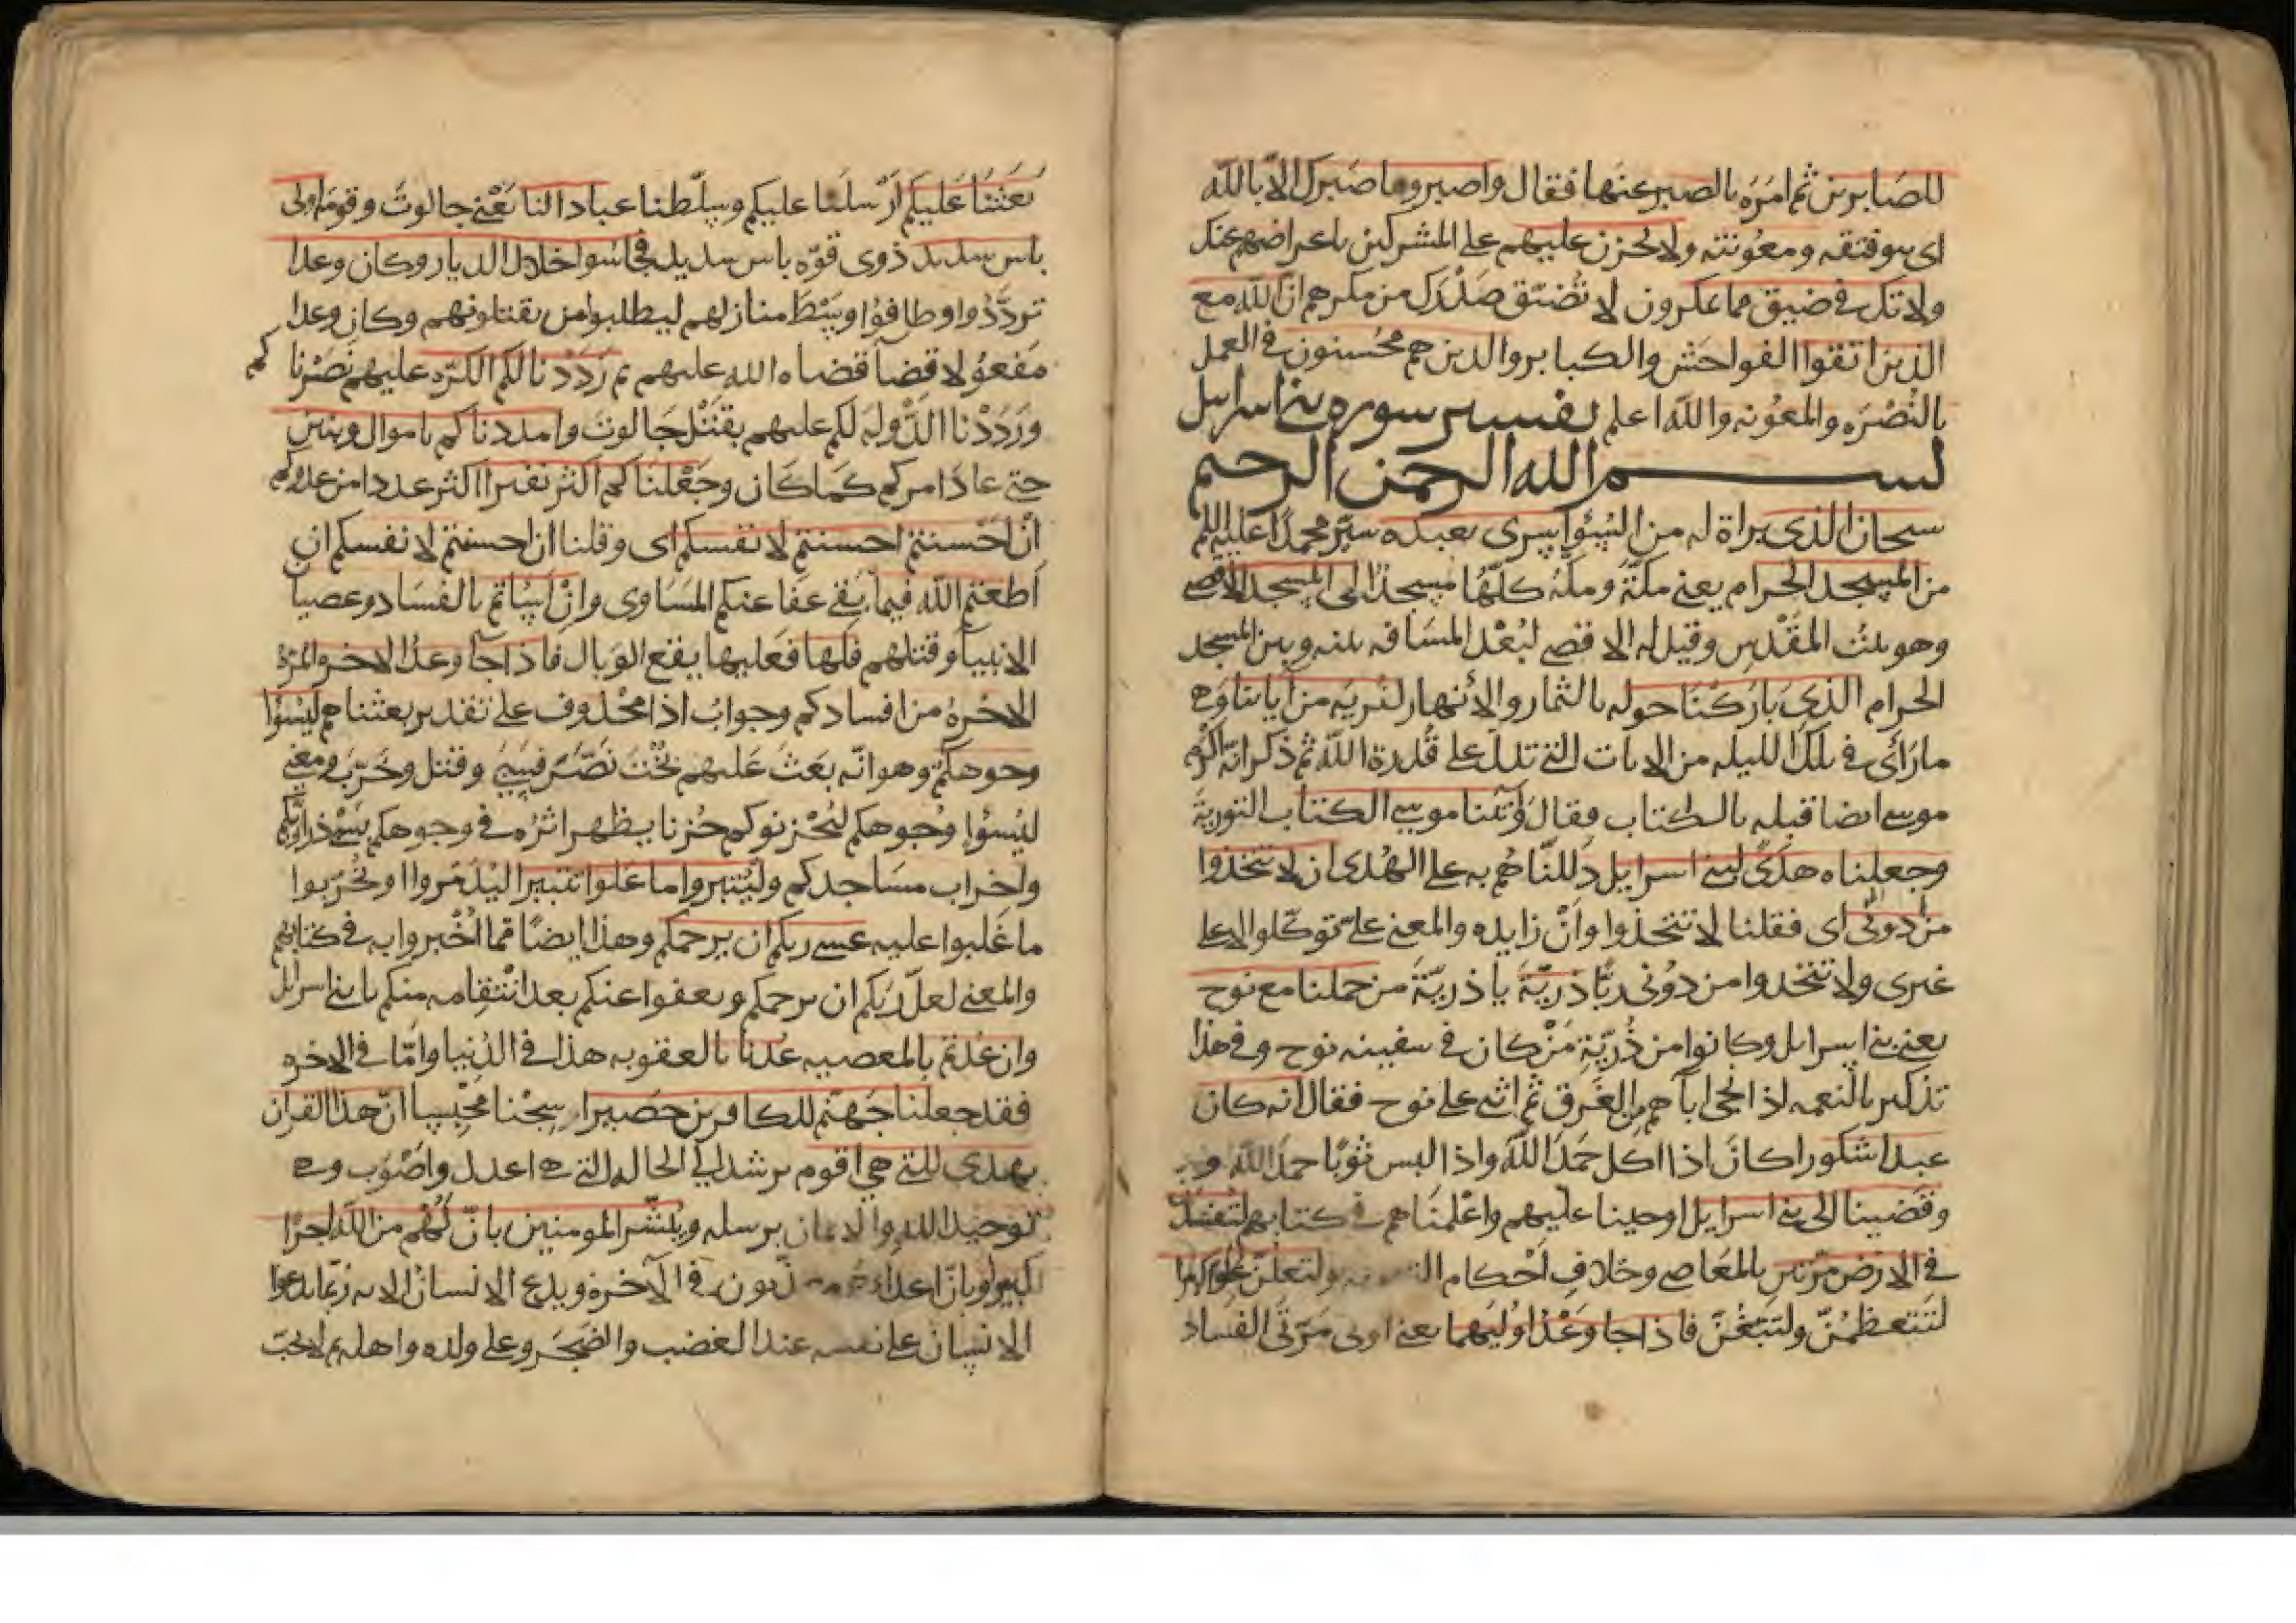 للصابرين ثم امره بالصبر عنها فقال واصبر وما صبرك الا بالله
اى بتوفيقه ومعونته ولا تحزن عليهم على المشركين باعراضهم عنك
ولا تك في ضيق مما يمكرون لا تضيّق صدرك من مكرهم انّ الله مع
الذين اتقوا الفواحش والكباير والذين هم محسنون في العمل
بالنصرة والمعونه والله اعلم تفسير سورة بني اسرايل
بسم الله الرحمن الرحيم
سبحان الذي براة له من السوء اسرى بعبده سيّر محمدا عليه السلم
من المسجد الحرام يعني مكة ومكة كلّها مسجد الى المسجد الاقصى
وهو بيت المقدس وقيل له الاقصى لبعد المسافه بينه وبين المسجد
الحرام الذي باركنا حوله بالثمار والانهار لنريه من آياتنا وهي
ما رأى في تلك الليله من الايات التي تدل على قدرة الله ثم ذكر انه اكرم
موسى ايضا قبله بالكتاب فقال وآتينا موسى الكتاب التورية
وجعلناه هدى لبني اسرايل دللناهم به على الهدى ان لا تتخذوا
من دوني اى فقلنا لا تتخذوا وأنْ زايده والمعنى على توكلوا الا على
غيري ولا تتخذوا من دوني ربّا ذريّة يا ذريّة من حملنا مع نوح
يعني بني اسرايل وكانوا من ذريّة مَنْ كان في سفينه نوح وفي هذا
تذكير بالنعمه اذ انجى اباهم من الغرق ثم اثنى على نوح فقال انه كان
عبدا شكورا كان اذا اكل حمد الله واذا لبس ثوبا حمد الله
وقضينا الى بني اسرايل اوحينا عليهم واعلمناهم في كتابهم لتفسدن
في الارض مرّتين بالمعاصي وخلاف احكام التوريه ولتعلنّ علوا كبيرا
لتتعظمُنّ ولتبغُنّ فاذا جا وعْدُ اوليهما يعني اولى مرّتي الفساد
بَعَثْنَا عَليكم اَرْسلنا عليكم وسلّطنا عبادا لنا يَعْني جالوت وقومه اولى
باس شديد ذوى قوّه باس شديد فجاسوا خلال الديار وكان وعدا
تردّدوا وطافوا وسْطَ منازلهم ليطلبوا من يقتلونهم وكان وعدا
مفعولا قضآ قضاه الله عليهم ثم رَدَدْنا لكم الكرّه عليهم نَصَرْنا كم
ورَدَدْنا الدّوله لكم عليهم بقتْل جالوت وامددناكم باموال وبنين
حتى عاد امركم كما كان وجَعْلناكم اكثر نفيرا اكثر عددا من عدوّكم
ان احسنتم احسنتم لانفسكم اى وقلنا ان احسنتم لانفسكم ان
اطعتم الله فيما بقي عفا عنكم المساوى وانْ اساتم بالفساد وعصيان
الانبيآ وقتلهم فلها فعليها يقع الوبال فاذا جآ وعد الاخرة المرّة
الاخرة من افسادكم وجوابُ اذا محذوف على تقدير بعثناهم ليسؤا
وجوهكم وهو انّه بعث عليهم بخت نصّر فسبى وقتل وخرّب ومعنى
ليسؤا وجوهكم ليُحْزنوكم حُزنا يظهر اثرُه في وجوهكم بسبْى ذراريكم
واخراب مساجدكم وليتبروا ما علوا تتبيرا ليُدَمّروا او يخرّبوا
ما غلبوا عليه عسى ربكم ان يرحمكم وهذا ايضا ممّا اُخْبروا به في كتابهم
والمعنى لعلّ ربكم ان يرحمكم ويعفوا عنكم بعد انْتقامه منكم يا بني اسرايل
وان عدتم بالمعصيه عدنا بالعقوبه هذا في الدّنيا وامّا في الاخره
فقد جعلنا جهنّم للكافرين حصيرا سجْنا محْبِسا انّ هذا القران
يهدى للتي هي اقوم يرشد الى الحاله التي هي اعدل واصوب وهي
توحيد الله والايمان برسله ويبشّر المومنين بانّ لهم من الله اجرا
كبيرا وبانّ اعداءهم معذّبون في الاخرة ويدع الانسان الايه ربّما يدعوا
الانسان على نفسه عند الغضب والضجر وعلى ولده واهله بم لا يحبّ